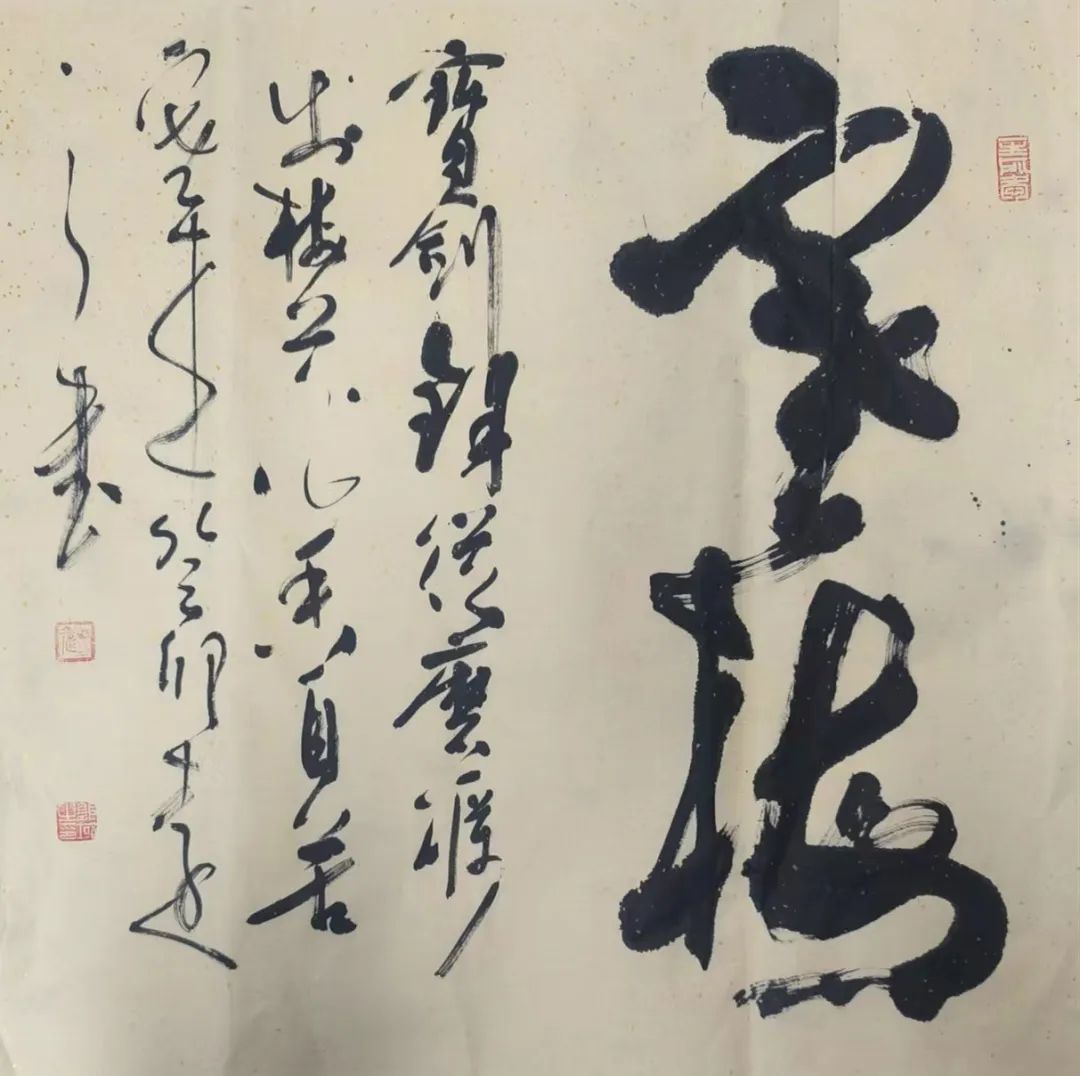 寒梅
寶劍鋒從磨礪
出梅花香自苦
寒來癸卯
書